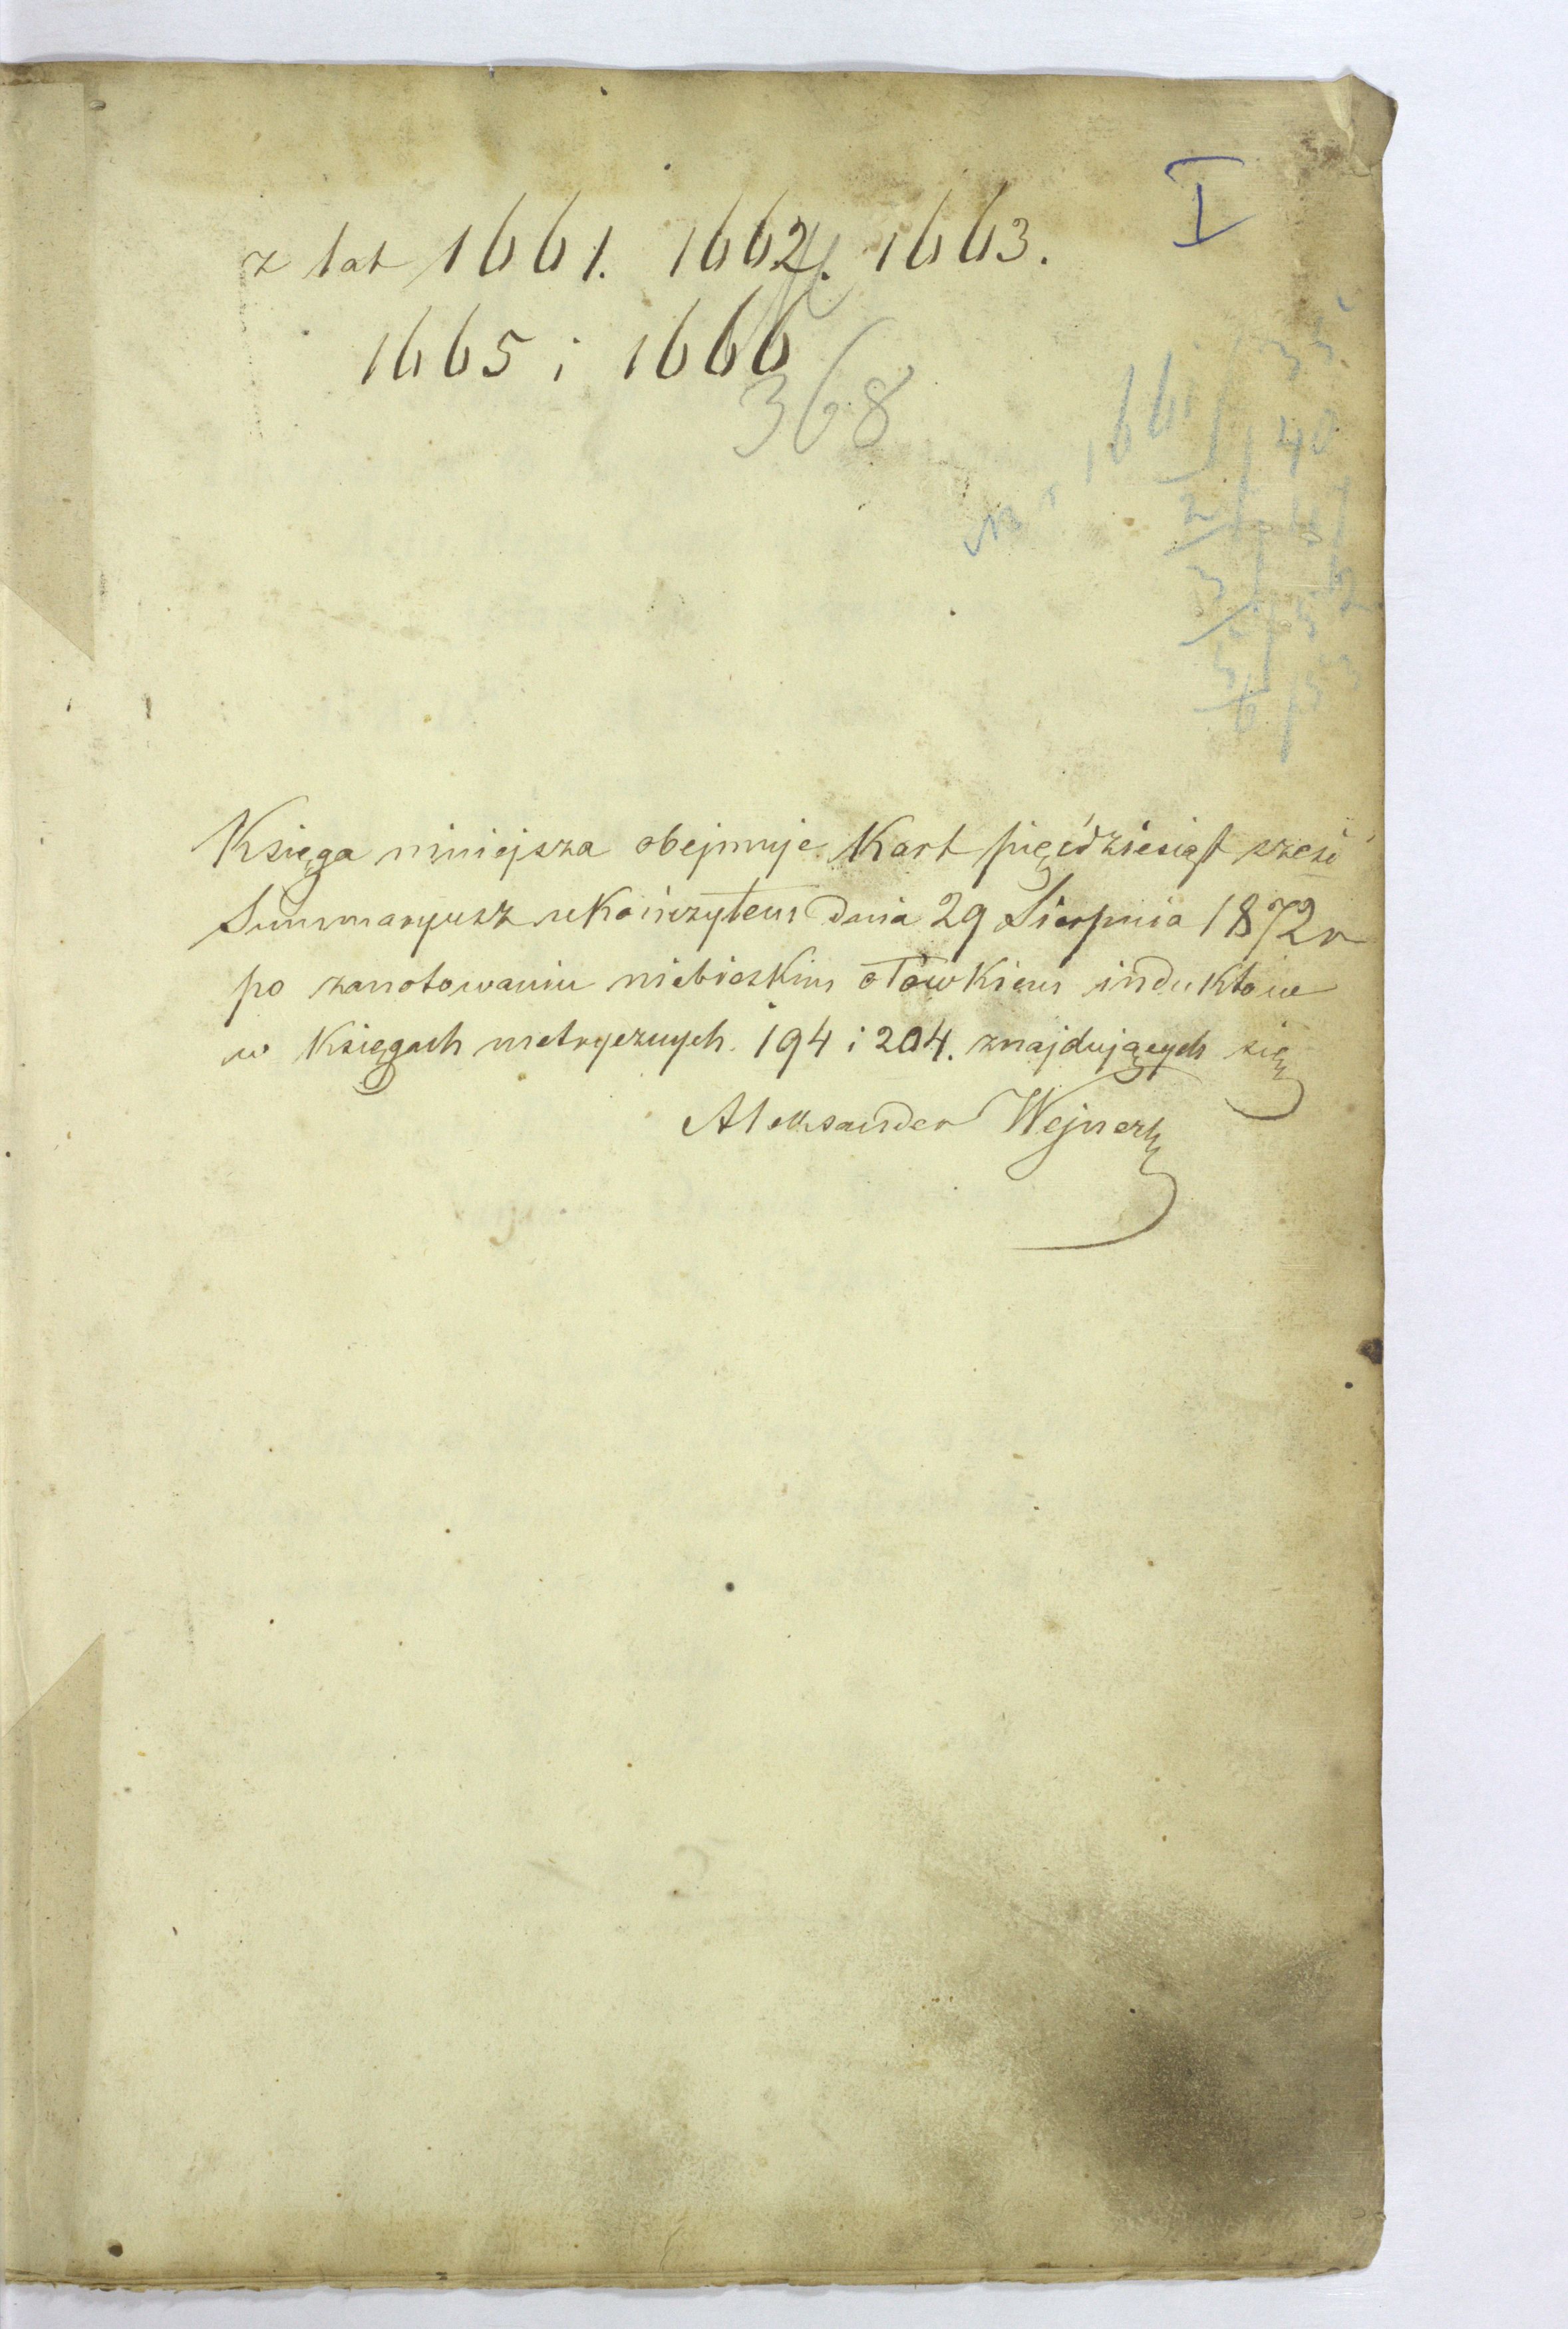 I
z lat 1661. 1662. 1663.
1665 i 1666
368
1661
35
40
Księga niniejsza obejmuje Kart pięćdziesiąt sześć
Summaryusz ukończyłem dnia 29 Sierpnia 1872 r
po zanotowaniu niebieskim ołówkiem induktów
w Księgach metrycznych. 194 i 204. znajdujących się
Aleksander Wejnert